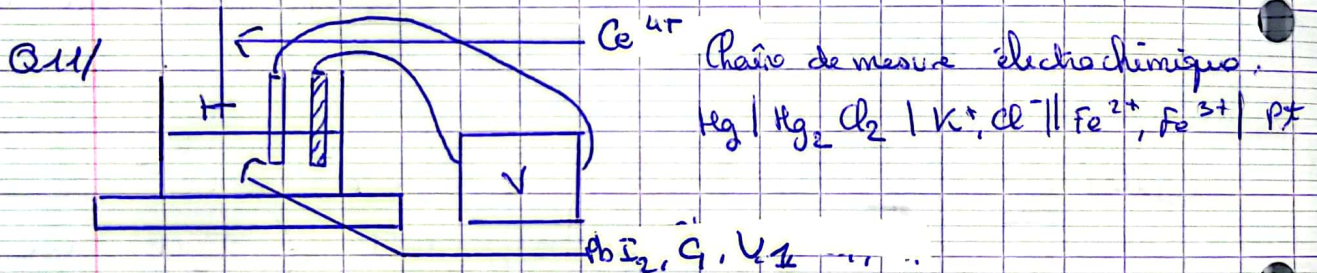 Q11/
Ce 4+
Chaîne de mesure électrochimique.
Hg | Hg2 Cl2 | K+, Cl- || Fe2+, Fe3+ | Pt
V
PbI2, C1, V1